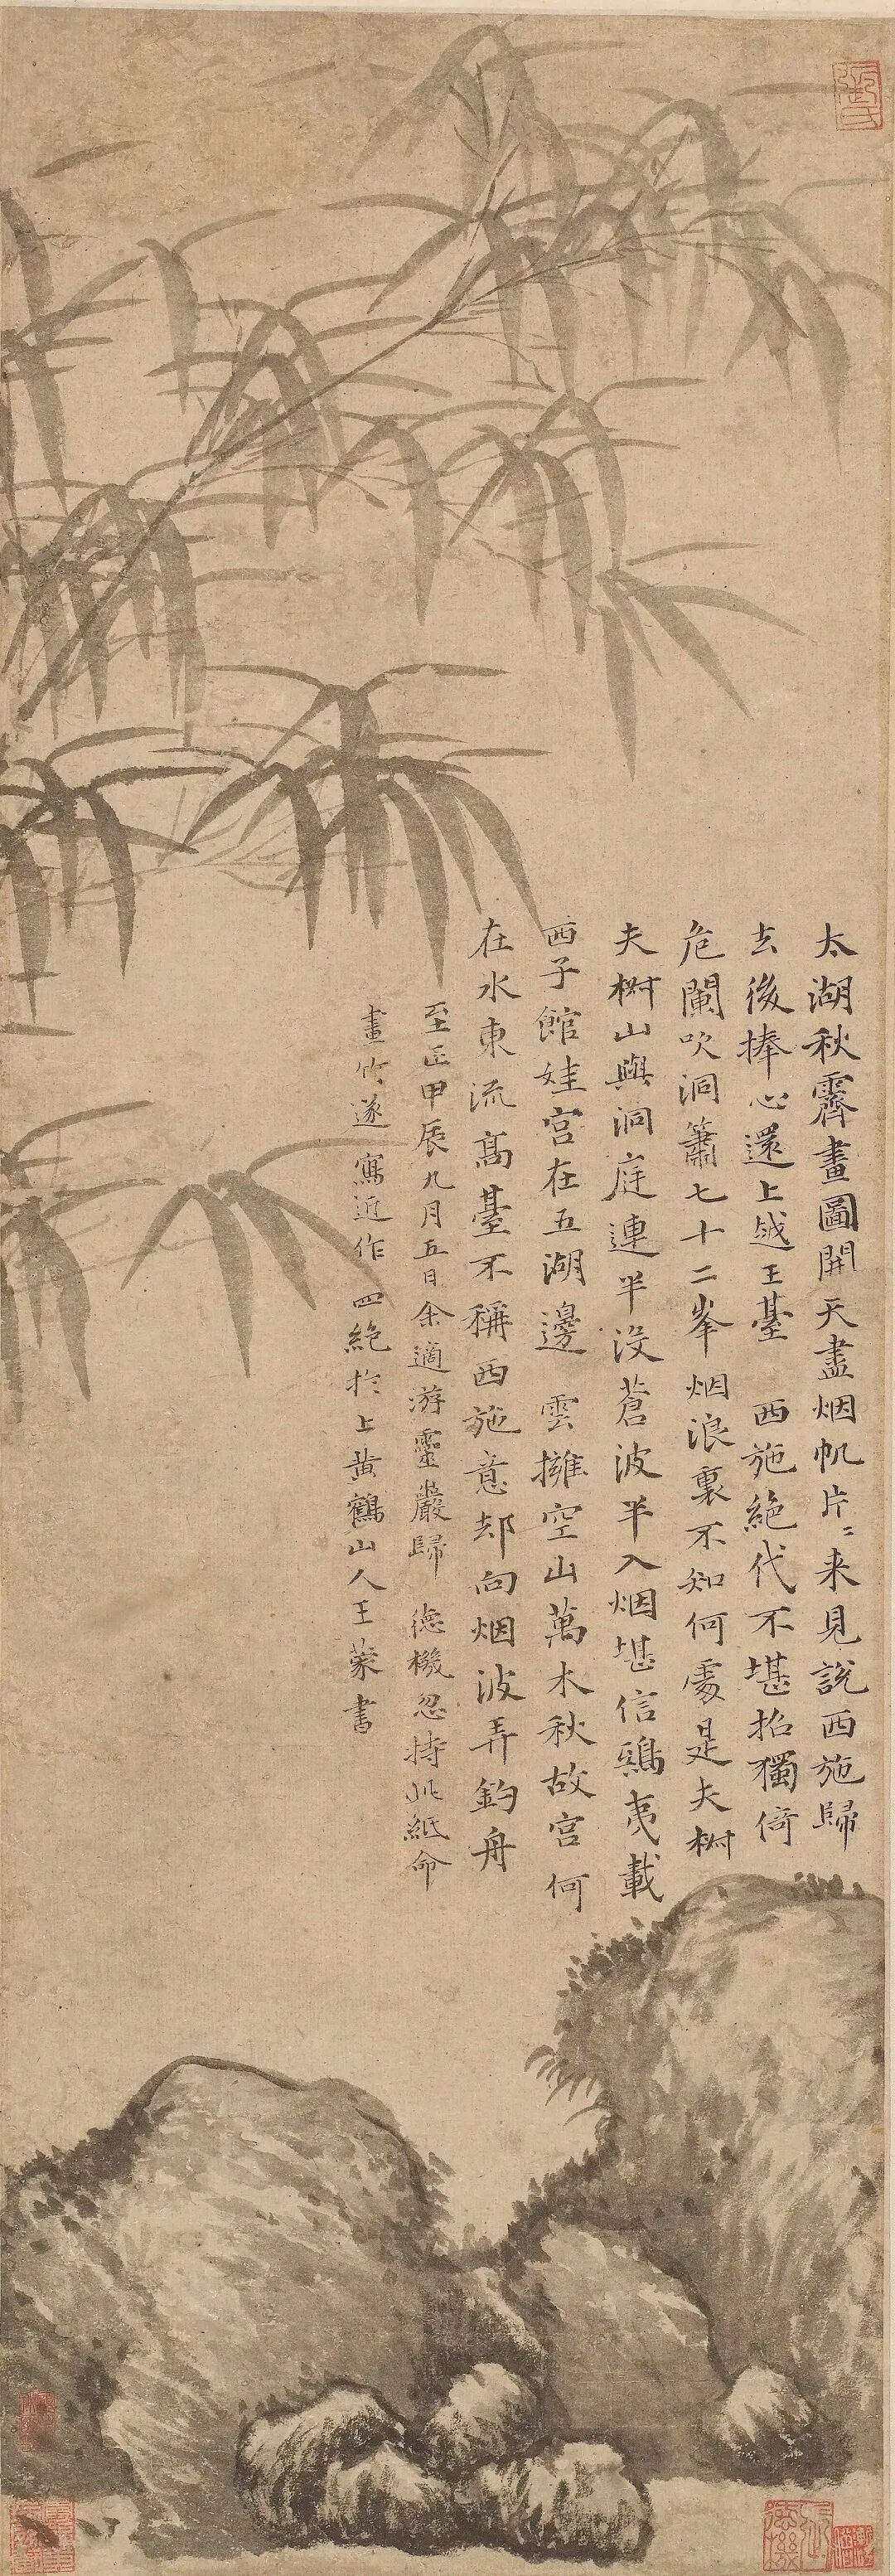 太湖秋霽畫圖開天盡烟帆片〻来見說西施歸
去後捧心還上越王臺　西施絕代不堪招獨倚
危闌吹洞簫七十二峯烟浪裏不知何處是夫椒
夫椒山與洞庭連半沒蒼波半入烟堪信鴟夷載
西子館娃宮在五湖邊　雲擁空山萬木秋故宮何
在水東流高臺不稱西施意却向烟波弄釣舟
至正甲辰九月五日余適游靈巖歸　德機忽持此紙命
畫竹遂寫近作四絕於上黃鶴山人王蒙書